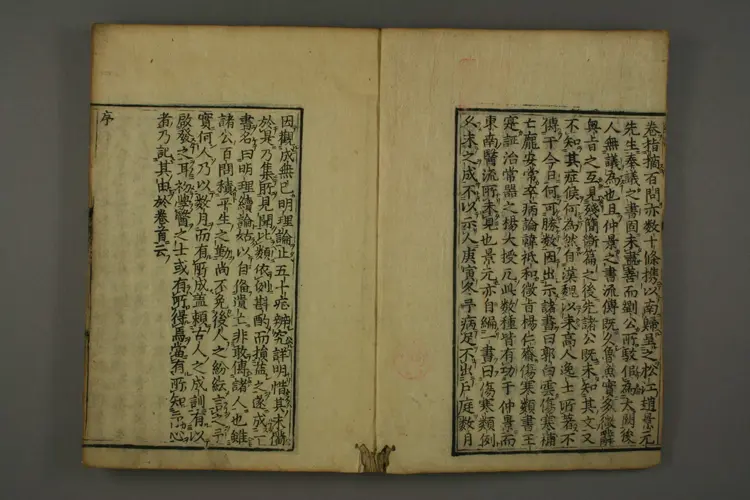 卷指摘百問亦數十條携以南歸呉之松江趙景元
先生奉議之書固未盡善而劉公所駁俱為太關後
人無議為也且仲景之書流傳既久魯魚實多微辭
奥旨之互見殘簡斷篇之後先諸公既未知其文又
不知其症候何為然自漢魏以来高人逸士所著不
傳于今旦何可勝數因出示諸書曰郭白雲傷寒補
亡龐安常卒病論韓祗和微旨楊仁齋傷寒類書王
寔證治常器之楊大授凡此數種皆有功于仲景而
東南醫流所未見也景元亦自編一書曰傷寒類例
久未之成不以示人庚寅冬予病足不出戸庭數月
因觀成無已明理論止五十症辨究詳明惜其未備
於是乃集所見聞比類依例斟酌而損益之遂成一
書名曰明理續論姑以自俻遺亡非敢傳諸人也雖
諸公百問積平生之勤尚不免後人之紛紜言之予
實何人乃以數月而有所成盖頼古人之成訓有以
啟發之耳初學醫之士或有所得焉當有所知予心
者乃記其由於卷首云
序